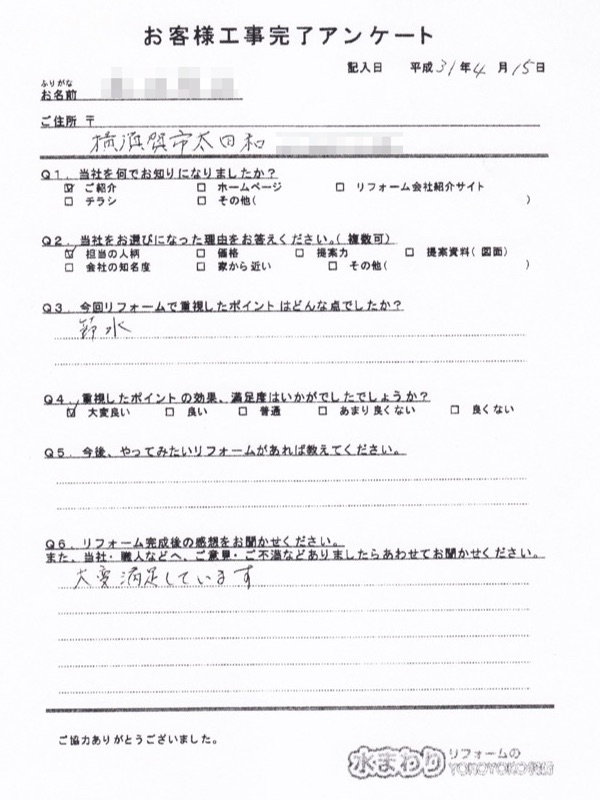 お客様工事完了アンケート
記入日 平成31年4月15日
ふりがな
お名前
ご住所 〒
横須賀市太田和
Q1. 当社を何でお知りになりましたか?
☑ ご紹介 □ ホームページ □ リフォーム会社紹介サイト
□ チラシ □ その他( )
Q2. 当社をお選びになった理由をお答えください。(複数可)
☑ 担当の人柄 □ 価格 □ 提案力 □ 提案資料(図面)
□ 会社の知名度 □ 家から近い □ その他( )
Q3. 今回リフォームで重視したポイントはどんな点でしたか?
節水
Q4. 重視したポイントの効果、満足度はいかがでしたでしょうか?
☑ 大変良い □ 良い □ 普通 □ あまり良くない □ 良くない
Q5. 今後、やってみたいリフォームがあれば教えてください。
Q6. リフォーム完成後の感想をお聞かせください。
また、当社・職人などへ、ご意見・ご不満などありましたらあわせてお聞かせください。
大変満足しています
ご協力ありがとうございました。
水まわりリフォームの